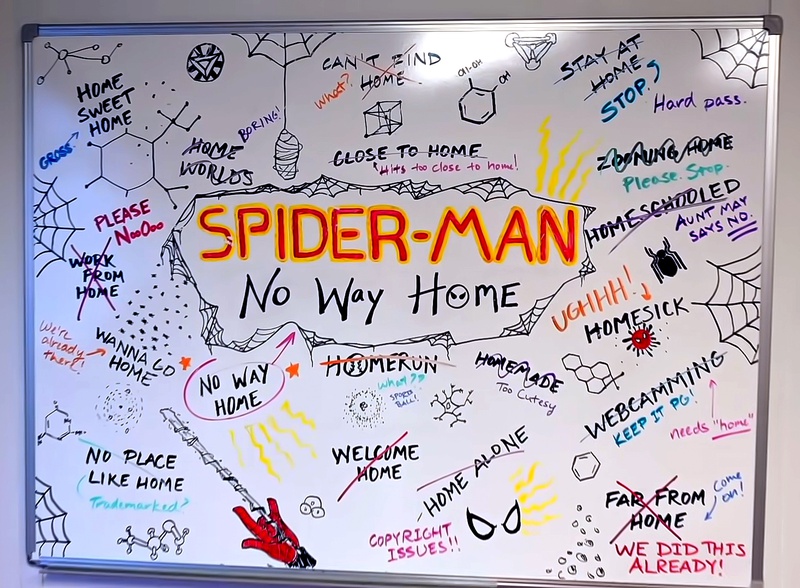 HOME
SWEET
HOME
GROSS
CAN'T FIND
HOME
What?
OH
OH
STAY AT
HOME
STOP!
Hard pass.
BORING!
HOME
WORLDS
CLOSE TO HOME
Hits too close to home!
ZOOMING HOME
Please. Stop.
HOMESCHOOLED
AUNT MAY
SAYS NO.
PLEASE
NoOOo
WORK
FROM
HOME
SPIDER-MAN
No Way Home
UGHHH!
HOMESICK
We're
already
there!
WANNA GO
HOME
NO WAY
HOME
HOMERUN
What??
SPORTS
BALL!
HOMEMADE
Too Cutesy
WEBCAMMING
KEEP IT PG!
needs "home"
NO PLACE
LIKE HOME
Trademarked?
WELCOME
HOME
HOME ALONE
COPYRIGHT
ISSUES!!
FAR FROM
HOME
Come
on!
WE DID THIS
ALREADY!